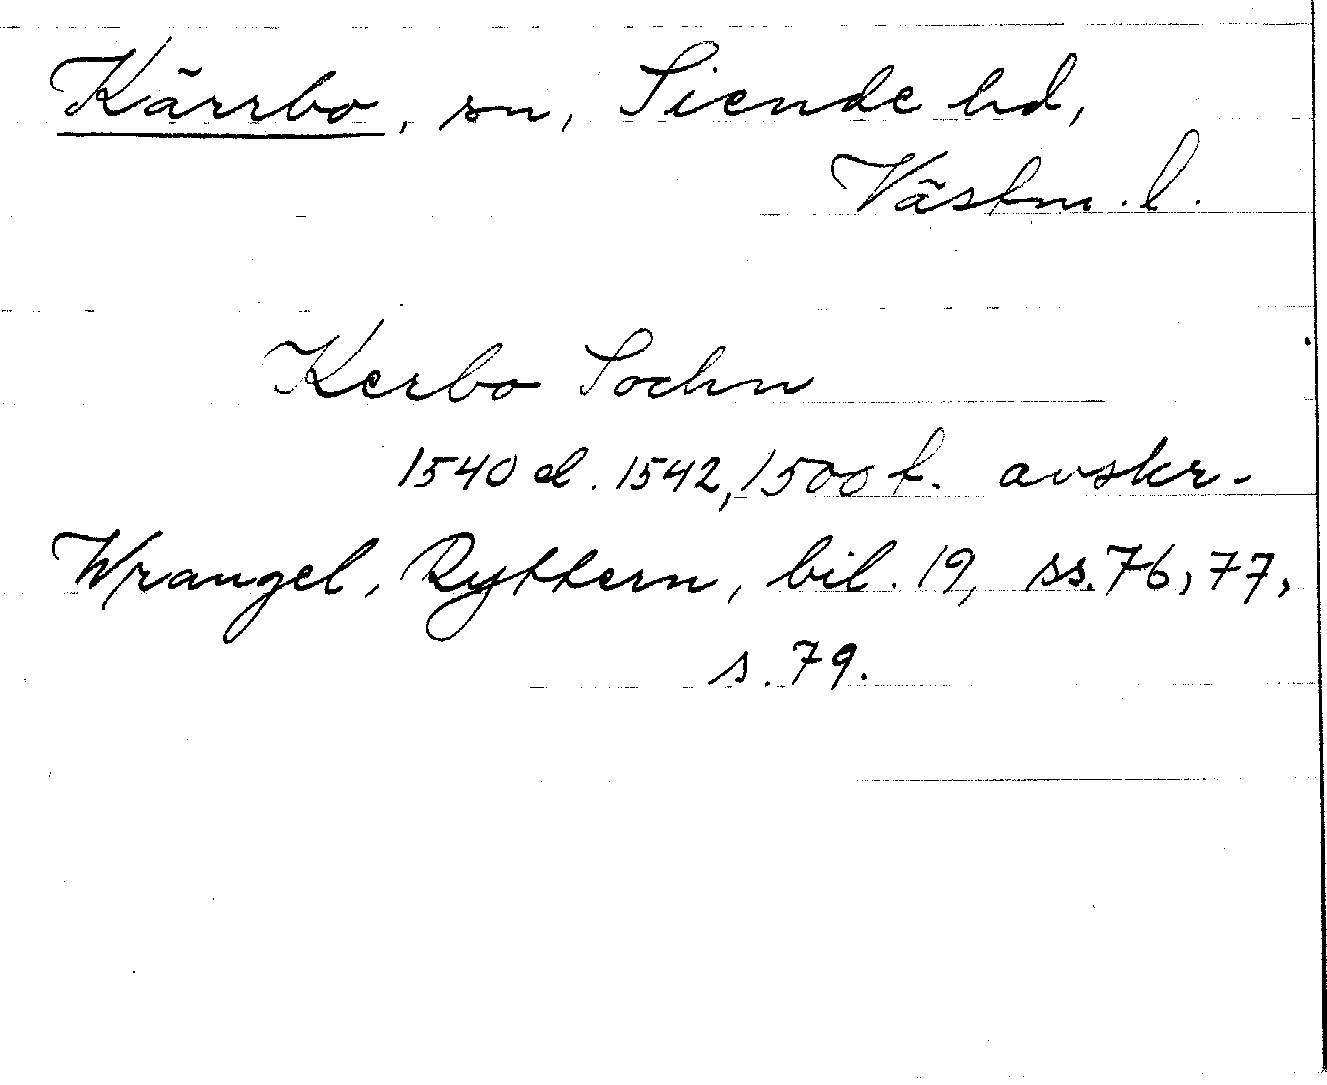 Kärrbo, sn, Siende hd,
Västm. l.
Kerbo Sochn
1540 el. 1542, 1500 t. avskr.
Wrangel, Ryttern, bil. 19, ss. 76, 77,
s. 79.